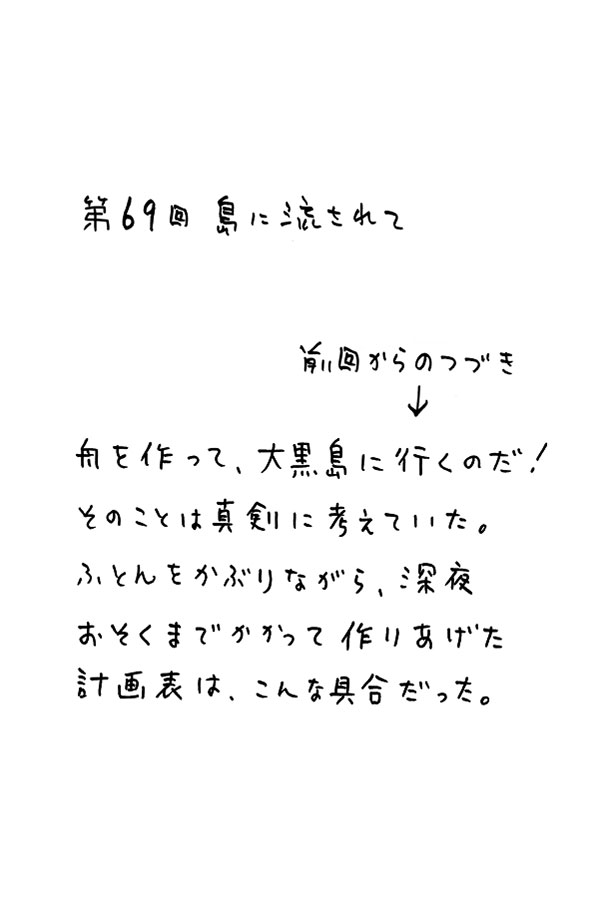 第69回 島に流されて
前回からのつづき
↓
舟を作って、大黒島に行くのだ!
そのことは真剣に考えていた。
ふとんをかぶりながら、深夜
おそくまでかかって作りあげた
計画表は、こんな具合だった。